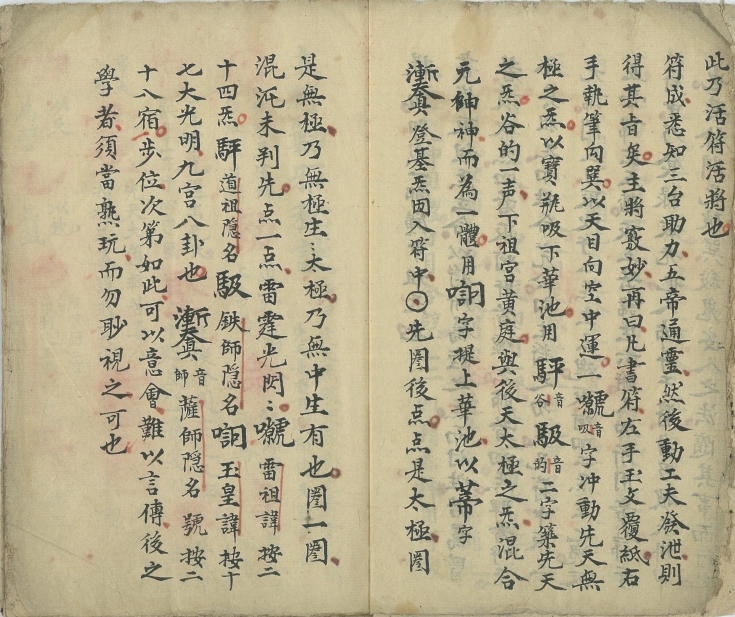 此乃活符活將也
符成悉知三台助力五帝通靈然後動工夫發泄則
得其旨矣主將竅妙再曰凡書符左手玉文覆紙右
手執筆向巽以天目向空中運一嘘音吸字冲動先天無
極之炁以寶瓶吸下華池用音谷音的二字築先天
之炁谷的一声下祖宮黃庭與後天太極之炁混合
元神神而為一體用字提上華池以字
登基炁因入符中〇先圈後点点是太極圈
是無極乃無極生〻太極乃無中生有也圈一圈
混沌未判先点一点雷霆光閃〻雷祖諱按二
十四炁道祖隱名鉄師隱名玉皇諱按十
七大光明九宮八卦也音師薩師隱名號按二
十八宿步位次第如此可以意會難以言傳後之
學者須當熟玩而勿眇視之可也